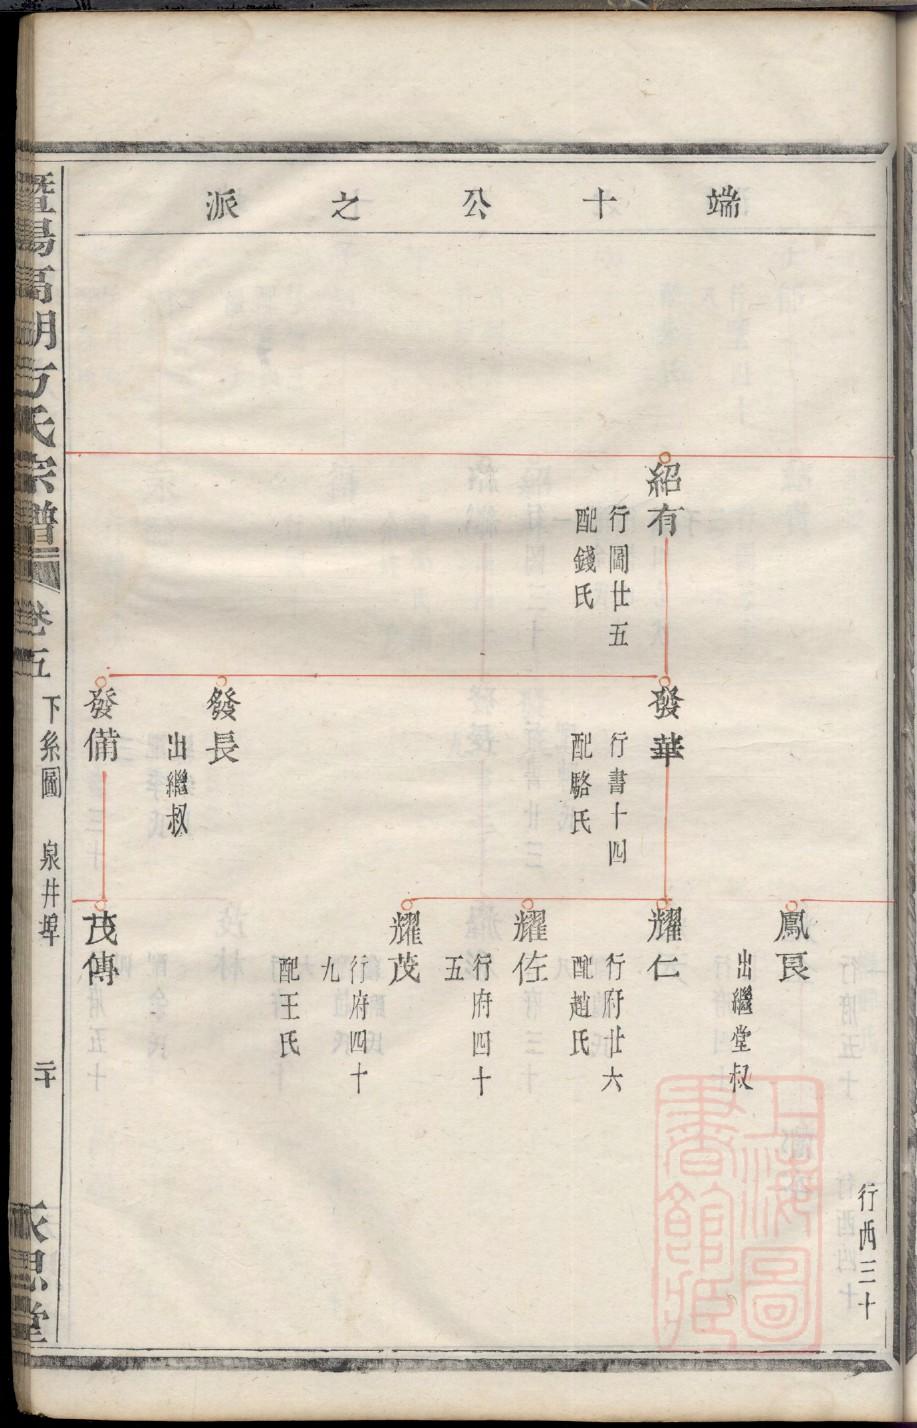 端十公之派
行西三十
紹有
行圖廿五
配錢氏
發華
行書十四
配駱氏
發長
出繼叔
發備
鳳良
出繼堂叔
耀仁
行府廿六
配趙氏
耀佐
行府四十
五
耀茂
行府四十
九
配王氏
茂傳
暨陽高湖方氏宗譜
卷五
下系圖
泉井埠
二十
永思堂
上海圖
書館藏